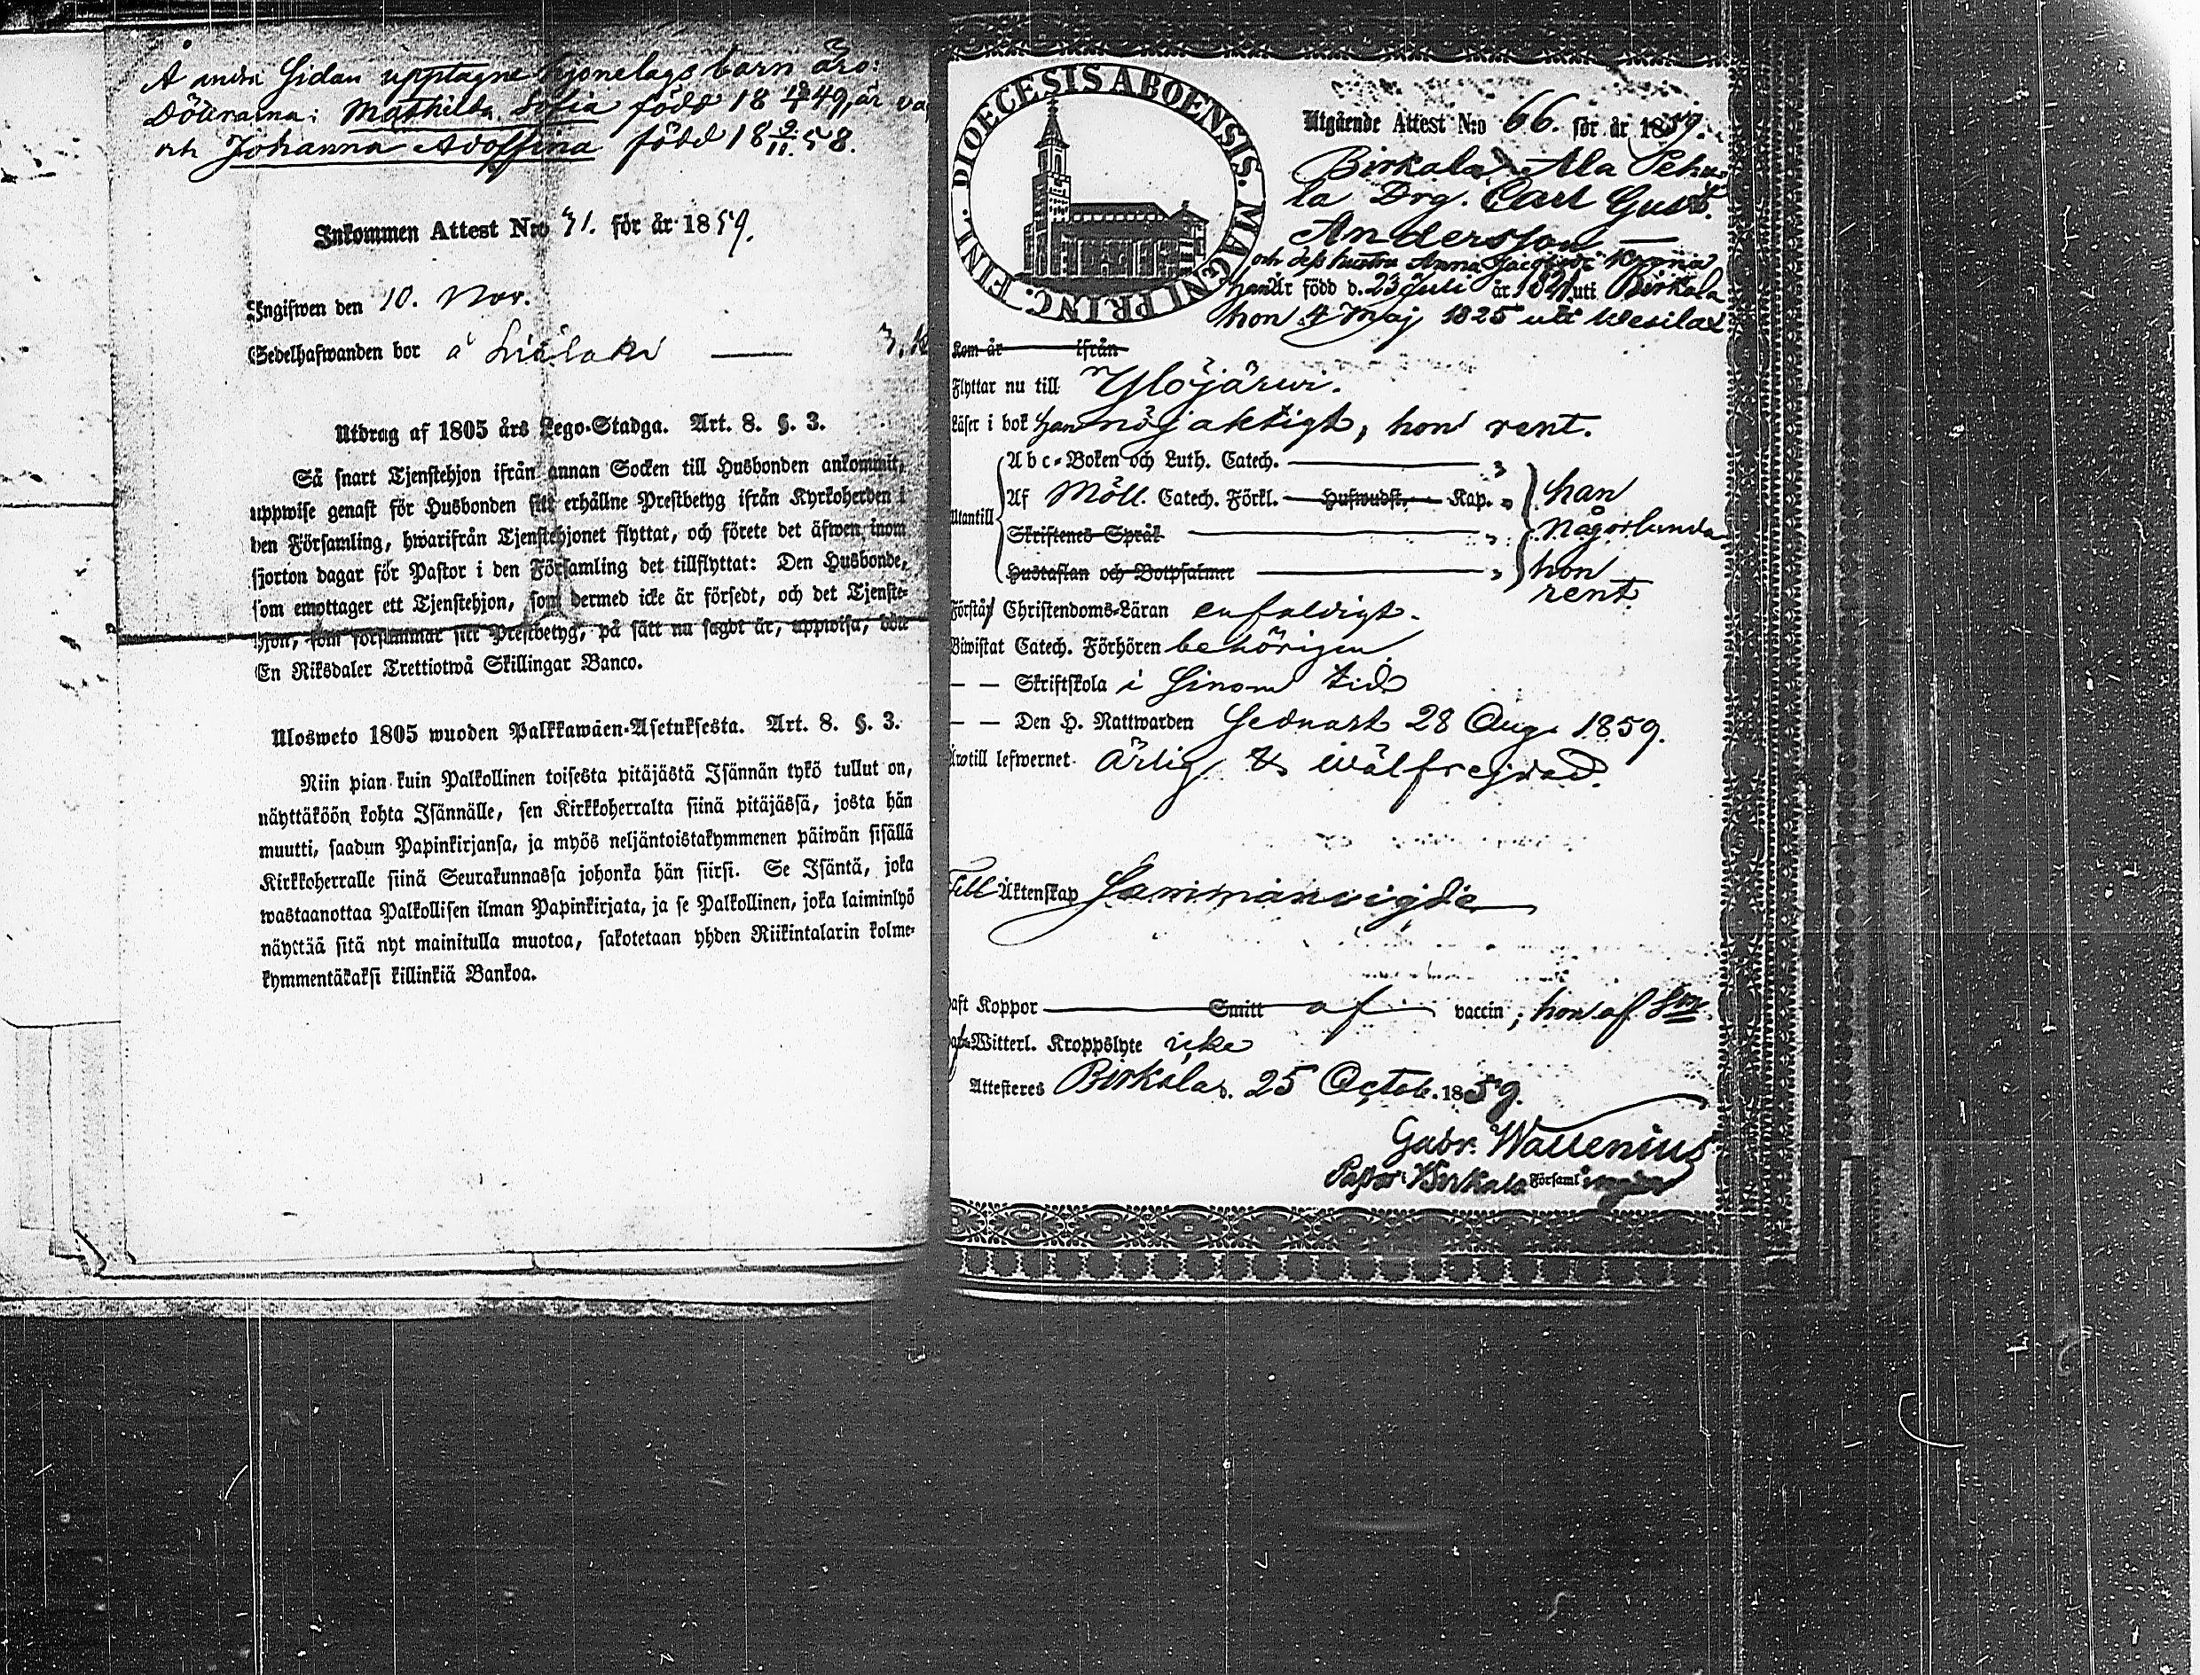 Å andra Sidan upptagne hjonelags barn äro:
Döttrarna: Mathilda Sofia född 18 49, är
och Johanna Adolfina född 18 9/11 58.
Inkommen Attest N:o 31. för år 1859.
Ingifwen den 10. Nov.
Sedelhafwanden bor å
Utdrag af 1805 års Lego-Stadga. Art. 8. §. 3.
Så snart Tjenstehjon ifrån annan Socken till Husbonden ankommit,
uppwise genast för Husbonden sitt erhållne Prestbetyg ifrån Kyrkoherden i
den Församling, hwarifrån Tjenstehjonet flyttat, och förete det äfwen inom
fjorton dagar för Pastor i den Församling det tillflyttat: Den Husbonde,
som emottager ett Tjenstehjon, som dermed icke är försedt, och det Tjenste-
hjon, som försummar sitt Prestbetyg, på sätt nu sagdt är, uppwisa, böte
En Riksdaler Trettiotwå Skillingar Banco.
Ulosweto 1805 wuoden Palkkawäen-Asetuksesta. Art. 8. §. 3.
Niin pian kuin Palkollinen toisesta pitäjästä Isännän tykö tullut on,
näyttäköön kohta Isännälle, sen Kirkkoherralta siinä pitäjässä, josta hän
muutti, saadun Papinkirjansa, ja myös neljäntoistakymmenen päiwän sisällä
Kirkkoherralle siinä Seurakunnassa johonka hän siirsi. Se Isäntä, joka
wastaanottaa Palkollisen ilman Papinkirjata, ja se Palkollinen, joka laiminlyö
näyttää sitä nyt mainitulla muotoa, sakotetaan yhden Riikintalarin kolme-
kymmentäkaksi killinkiä Bankoa.
DIOECESIS ABOENSIS. MAGNI PRINC. FINL.
Utgående Attest N:o 66. för år 1859.
Birkala, Ala Pehu-
la Drg. Carl Gust.
Andersson
och dess hustru Anna
han Är född d. 23 Juli år 1821 uti Birkala
hon 4 Maj 1825 uti Wesilax
Kom år ifrån
Flyttar nu till Ylöjärwi.
Läser i bok han nöjaktigt, hon rent.
Utantill
Abc-Boken och Luth. Catech.
Af Möll. Catech. Förkl. Hufwudst. Kap.
Skriftenes Språk
Hustaflan och Botpsalmer
han
någorlunda
hon
rent
Förstår Christendoms-Läran enfaldigt.
Biwistat Catech. Förhören behörigen
— — Skriftskola i sinom tid
— — Den H. Nattwarden sednast 28 Aug. 1859.
Är till lefwernet ärlig & wälfrejdad.
Till Äktenskap Sammanvigde
Haft Koppor Smitt af vaccin; hon af Sm
Witterl. Kroppslyte icke
Attesteres Birkala d. 25 Octob. 1859.
Gabr. Wallenius
Pastor i Birkala Församl